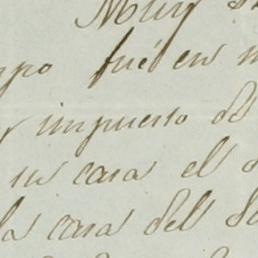 Muy
fué en
impuesto de
su casa el
la casa del